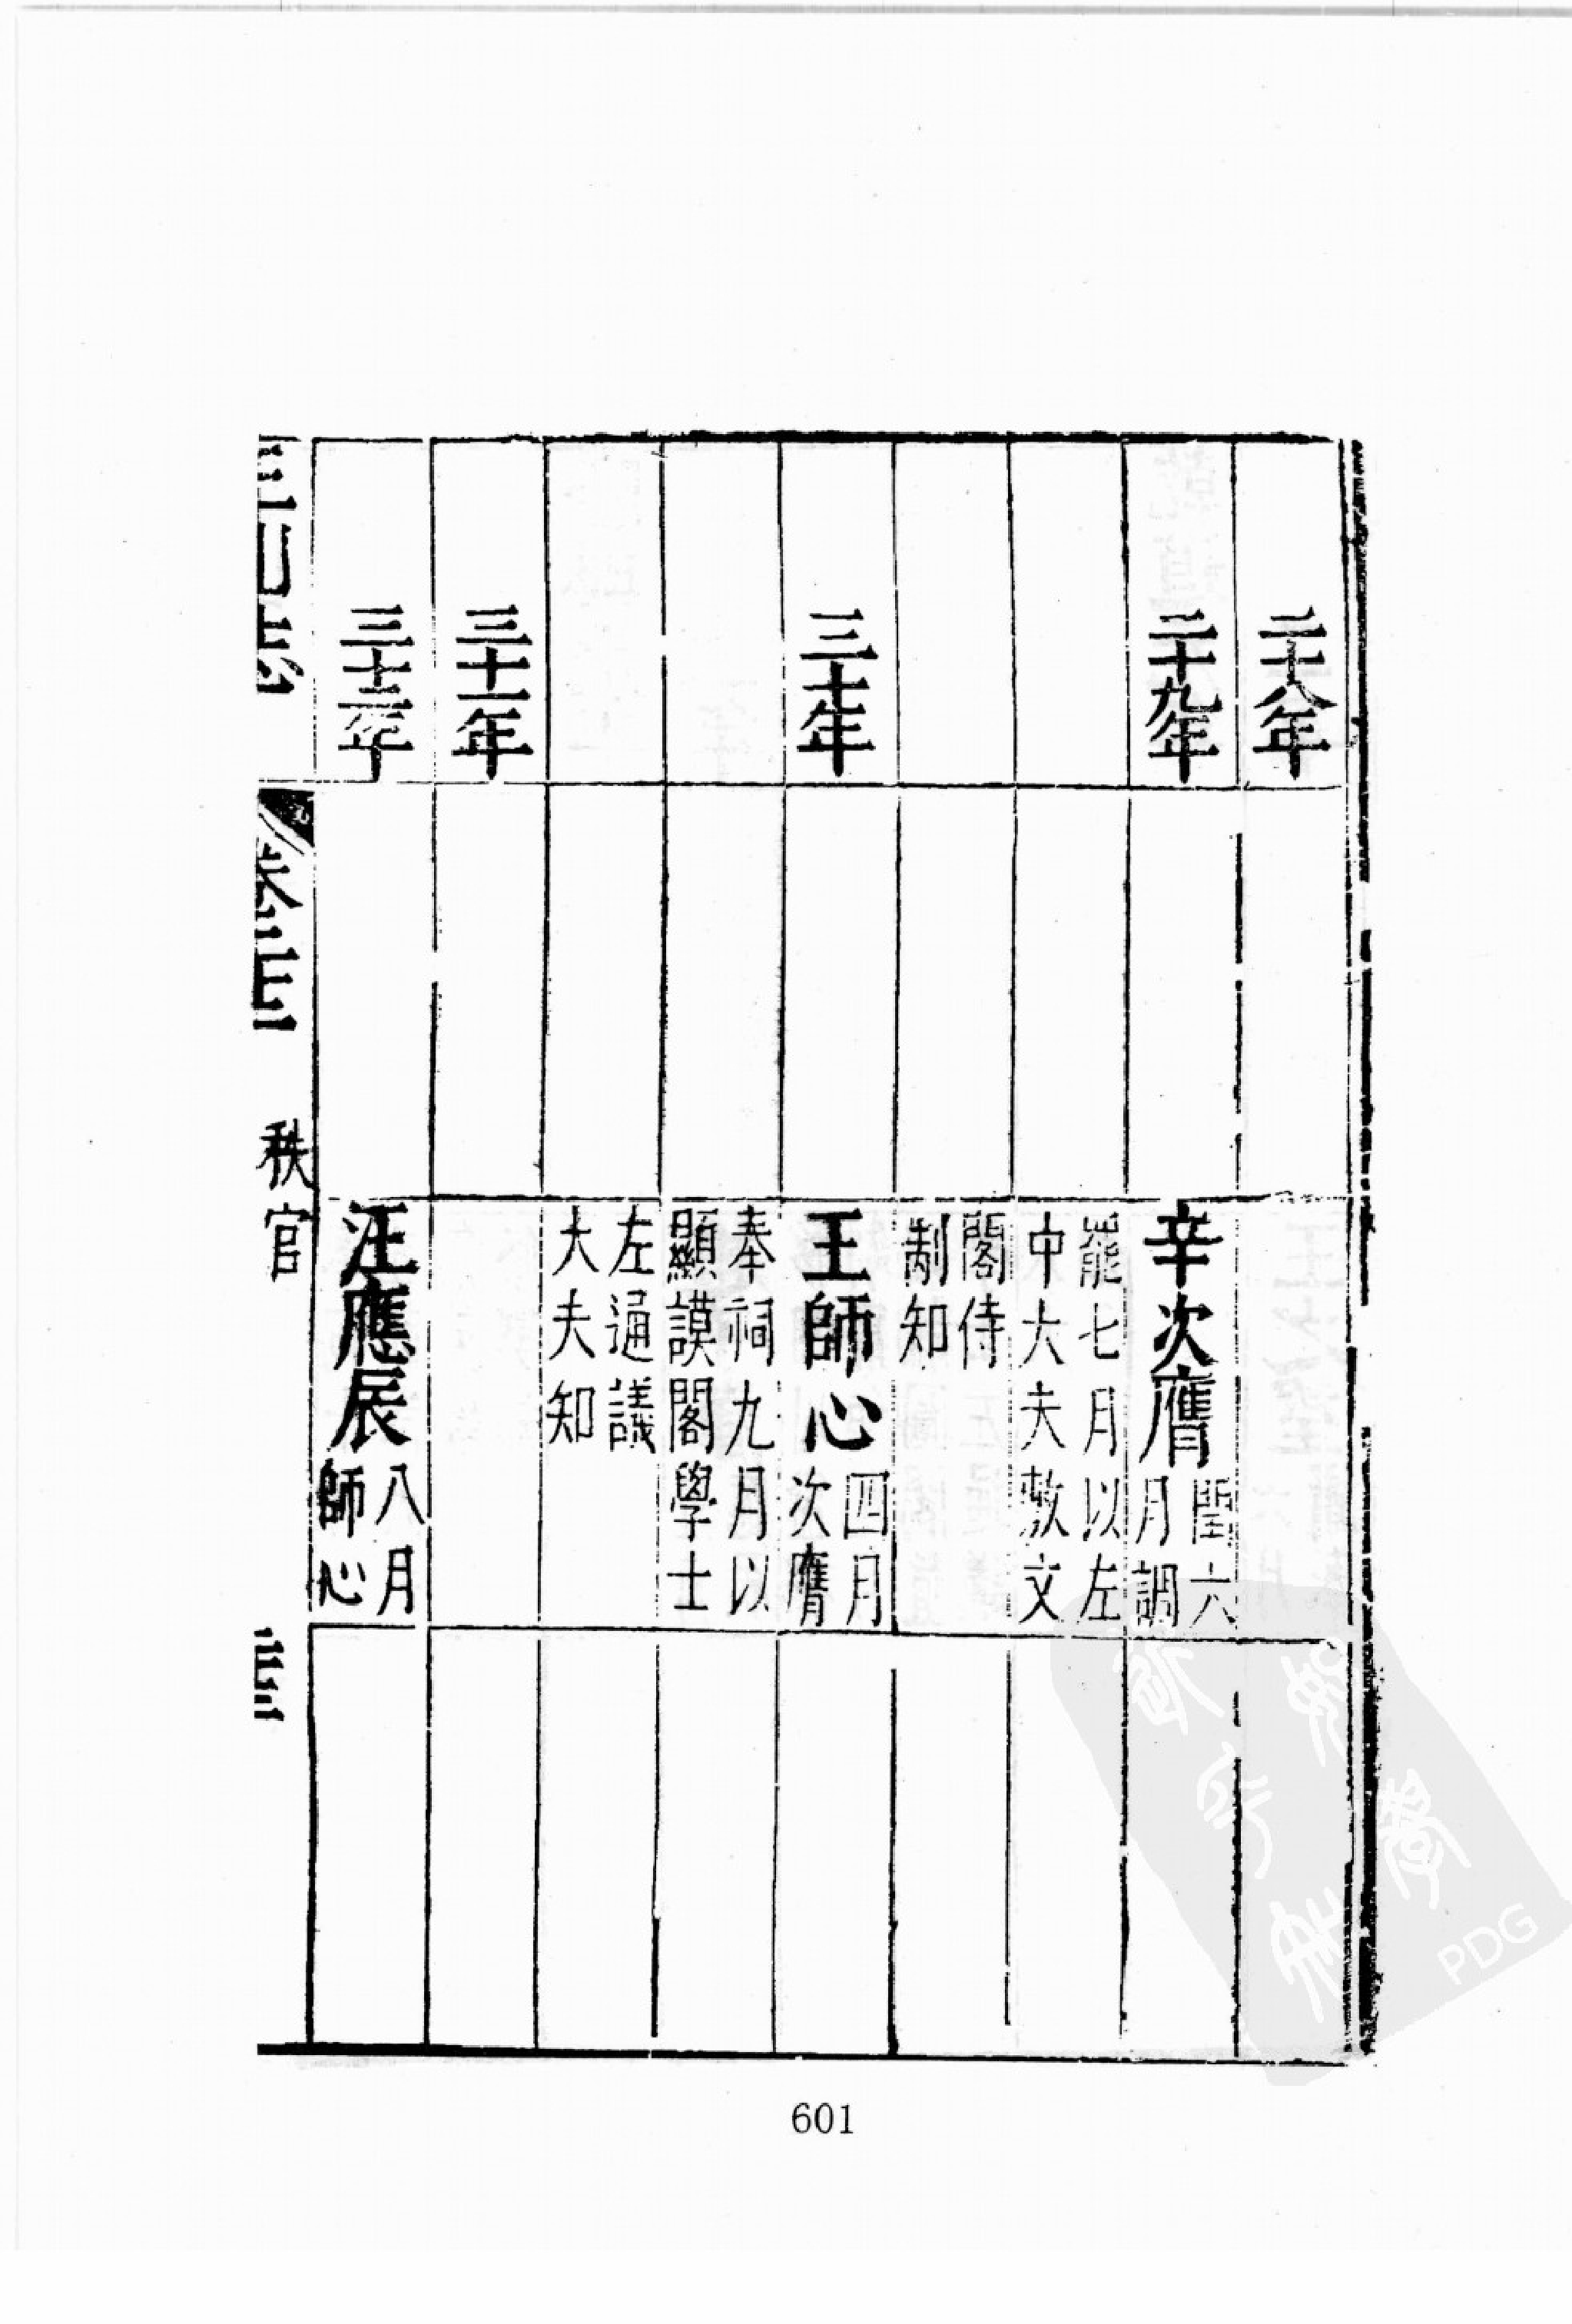 二十八年
二十九年
辛次膺
閏六
月調
罷七月以左
中大夫敷文
閣侍
制知
三十年
王師心
四月
次膺
奉祠九月以
顯謨閣學士
左通議
大夫知
三十一年
三十二年
汪應辰
八月
師心
秩官
601
PDG